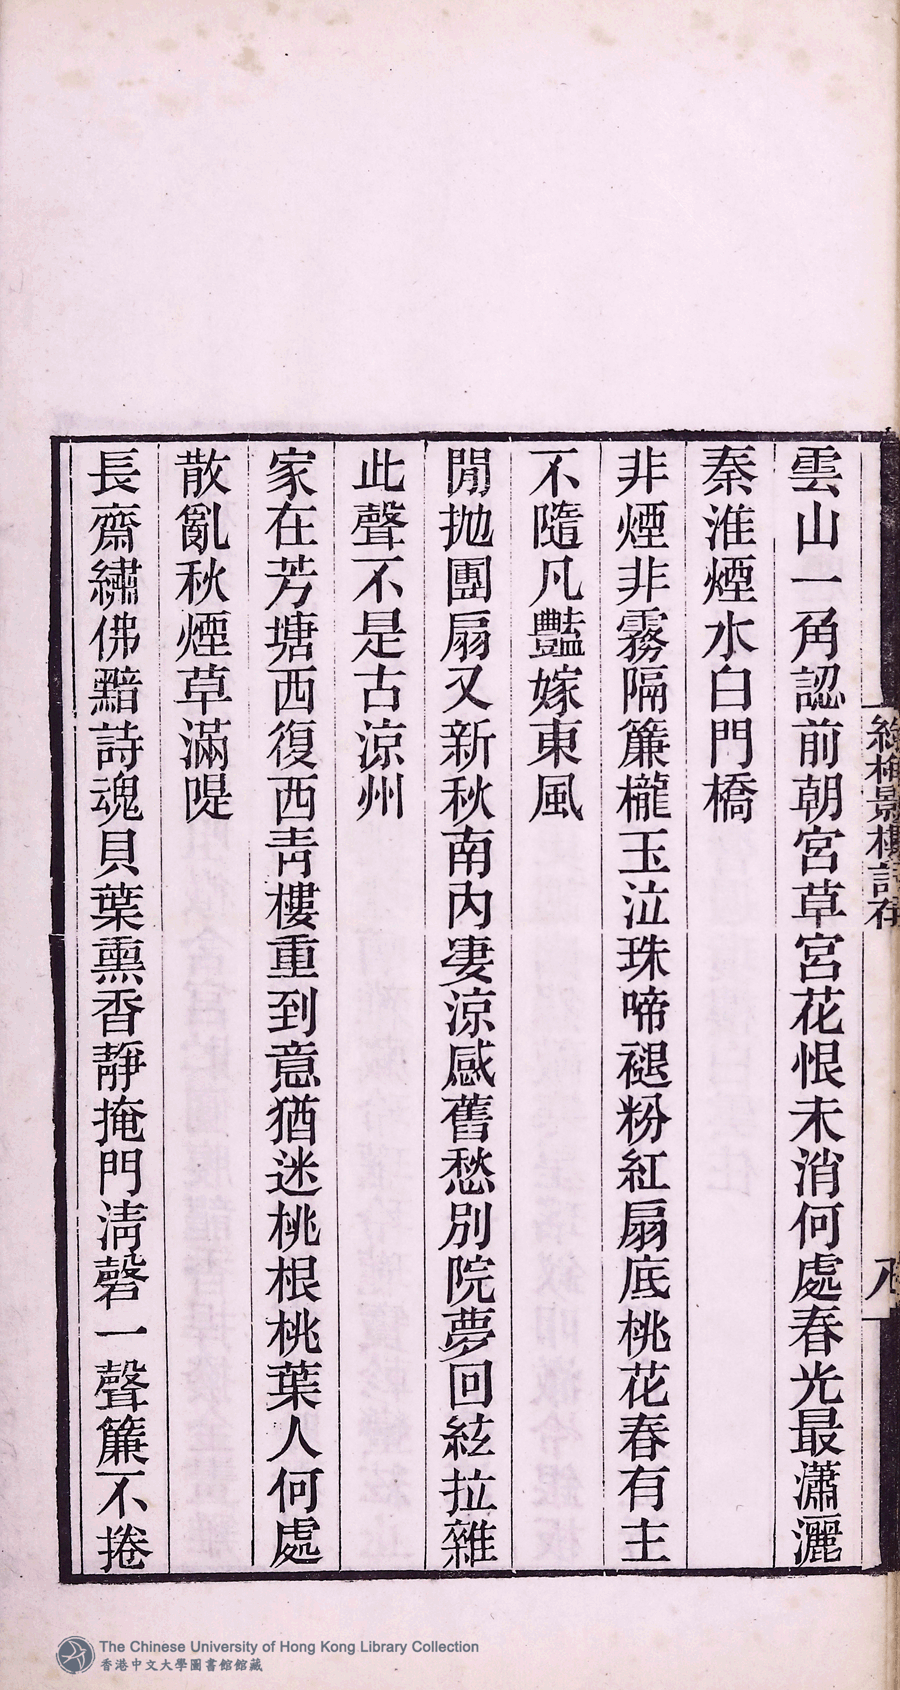 雲山一角認前朝宮草宮花恨未消何處春光最瀟灑
秦淮煙水白門橋
非煙非霧隔簾櫳玉泣珠啼褪粉紅扇底桃花春有主
不隨凡豔嫁東風
閒拋團扇又新秋南內淒涼感舊愁別院夢回絃拉雜
此聲不是古涼州
家在芳塘西復西青樓重到意猶迷桃根桃葉人何處
散亂秋煙草滿隄
長齋繡佛黯詩魂貝葉熏香靜掩門清磬一聲簾不捲
The Chinese University of Hong Kong Library Collection
香港中文大學圖書館館藏